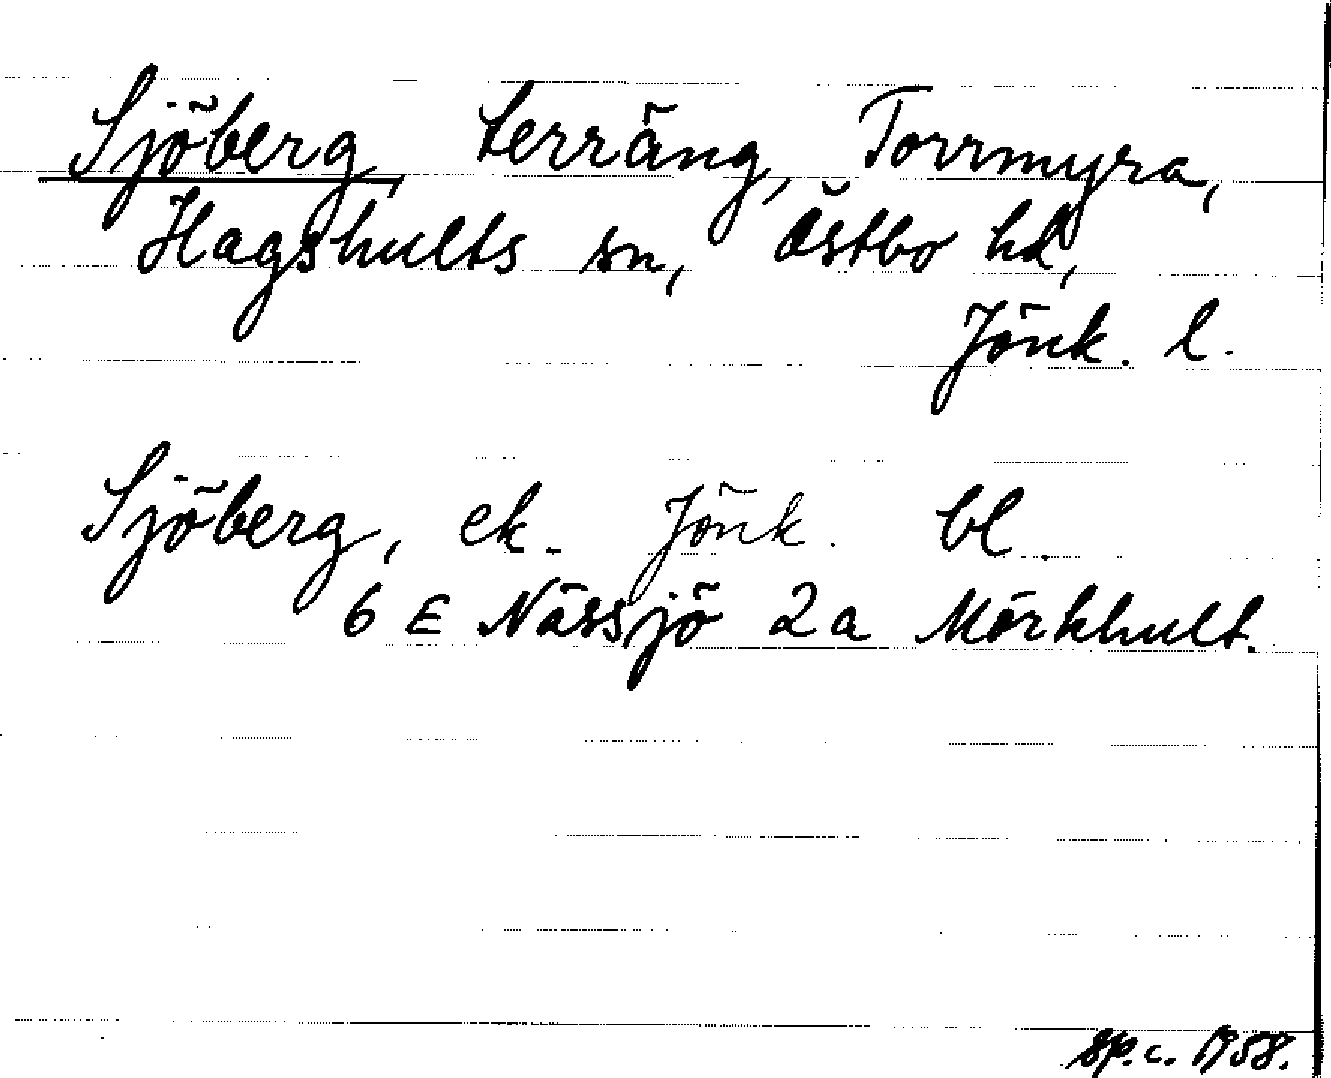 Sjöberg, terräng, Torrmyra,
Hagshults sn, Östbo hd,
Jönk. l.
Sjöberg, ek. Jönk. bl.
6 E Nässjö 2a Mörkhult.
sp.c. 1958.